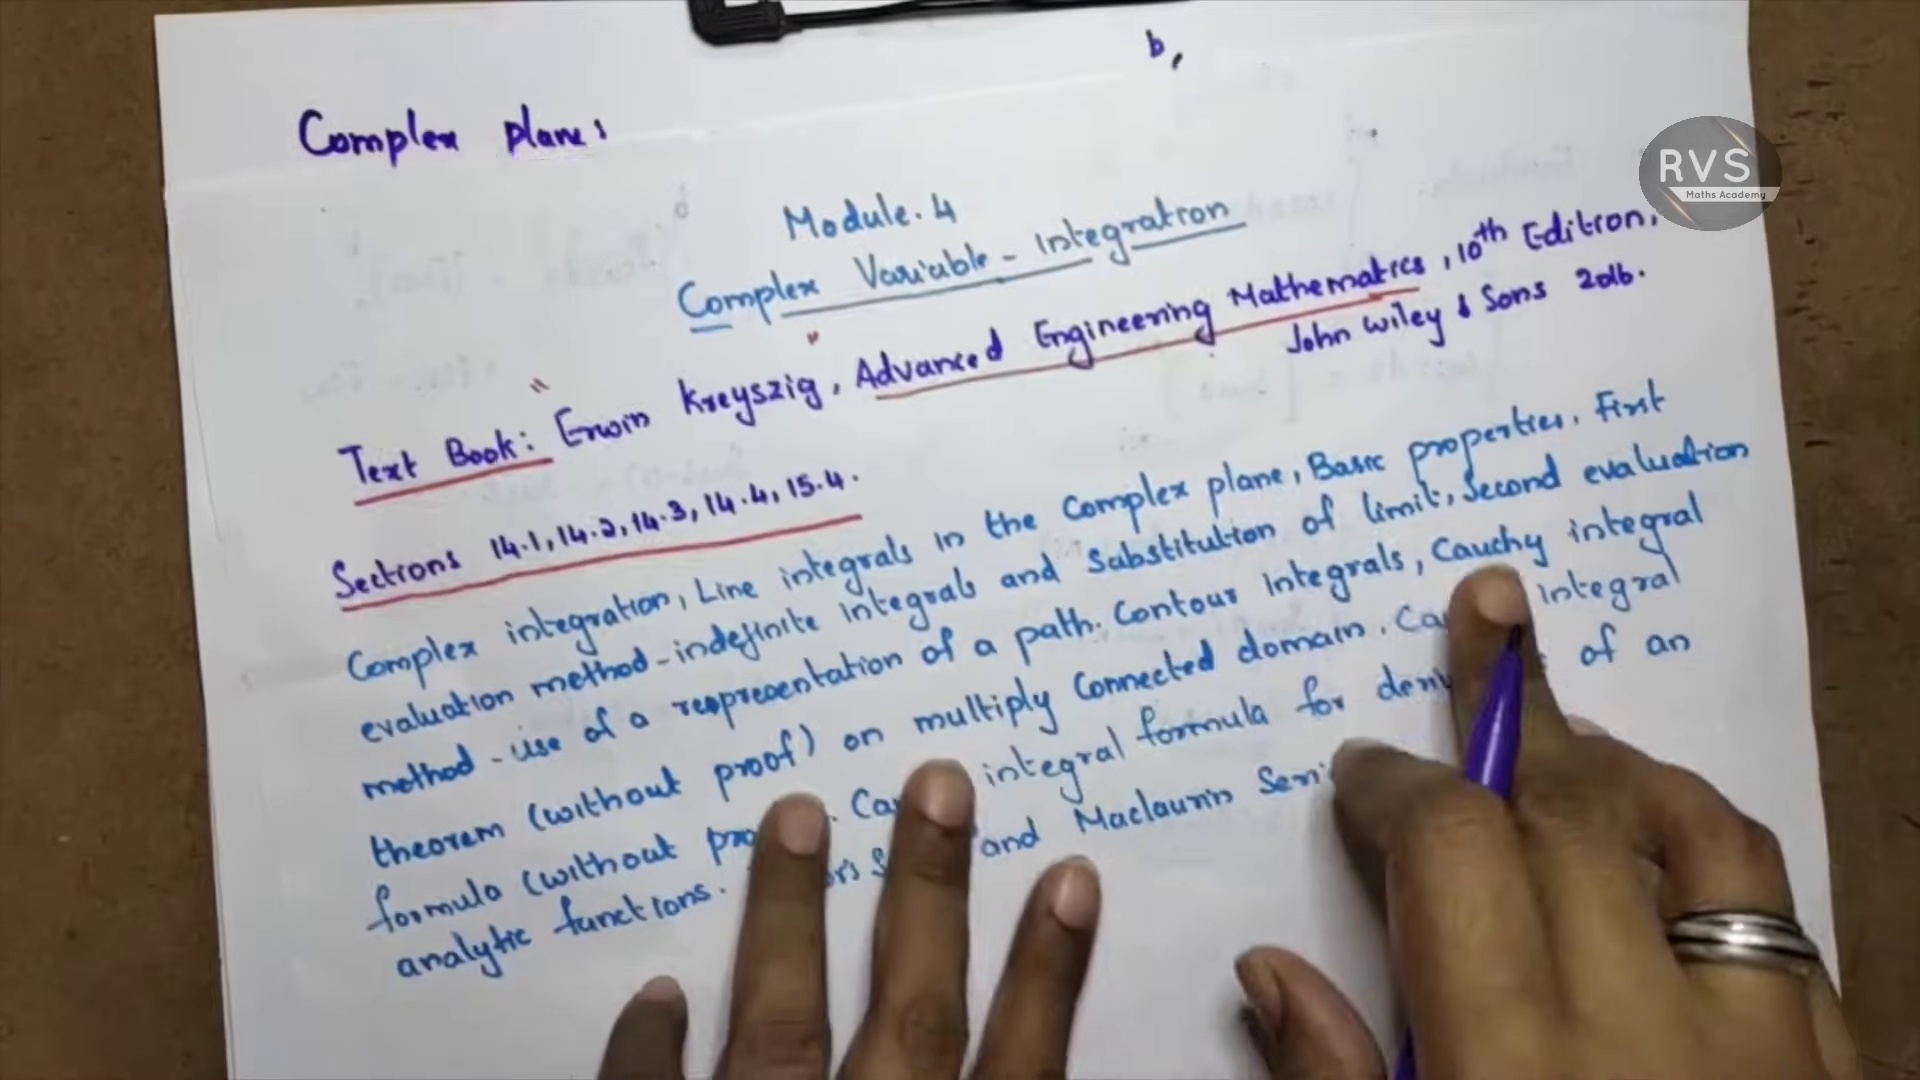 b,
Complex plane:
RVS
Maths Academy
Module. 4
Complex Variable - Integration
Text Book: Erwin Kreyszig, Advanced Engineering Mathematics, 10th Edition,
John Wiley & Sons 2016.
Sections 14.1, 14.2, 14.3, 14.4, 15.4.
Complex integration, Line integrals in the complex plane, Basic properties. First
evaluation method - indefinite integrals and substitution of limit, second evaluation
method - use of a representation of a path. Contour integrals, Cauchy integral
theorem (without proof) on multiply connected domain. integral
formula (without integral formula for of an
analytic functions. and Maclaurin